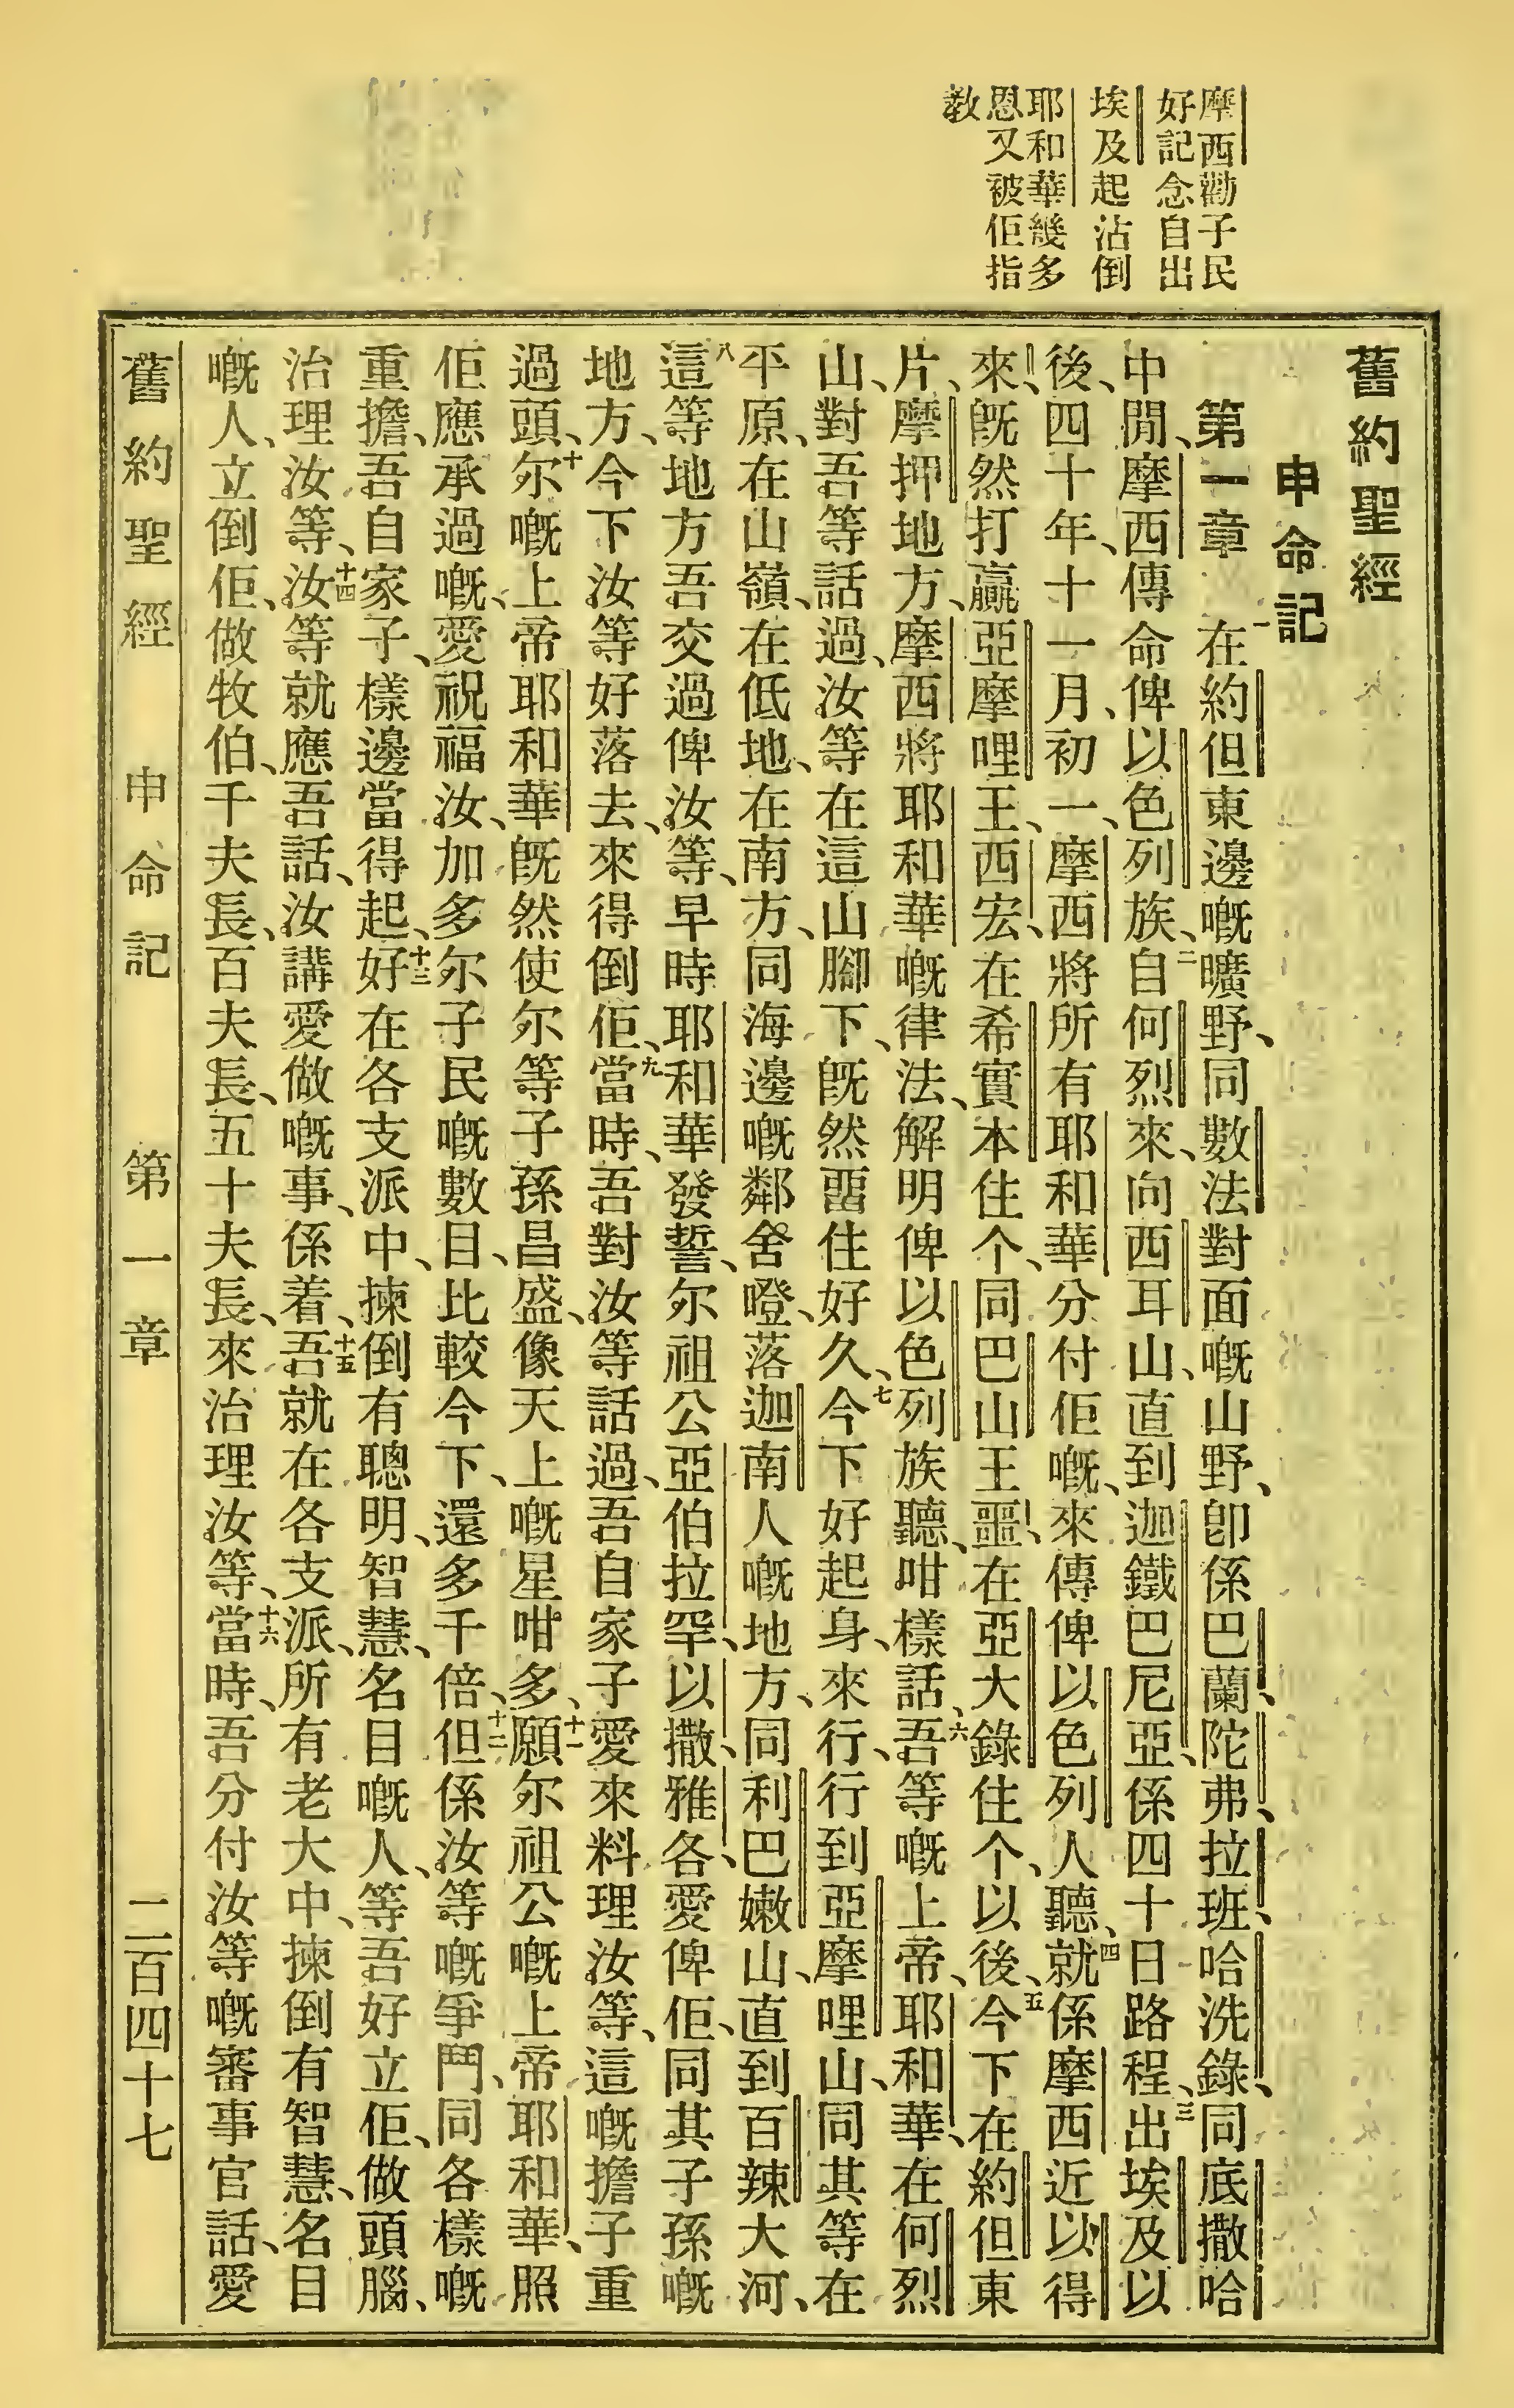 摩西勸子民
好記念自出
埃及起沾倒
耶和華幾多
恩又被佢指
教
舊約聖經
申命記
第一章 在約但東邊嘅曠野、同數法對面嘅山野、卽係巴蘭、陀弗、拉班、哈洗錄、同底撒哈
中間、摩西傳命俾以色列族、二自何烈來、向西耳山、直到迦鐵巴尼亞、係四十日路程、三出埃及以
後、四十年、十一月、初一、摩西將所有耶和華分付佢嘅、來傳俾以色列人聽、四就係摩西近以得
來、旣然打贏亞摩哩王、西宏、在希實本住个、同巴山王噩、在亞大錄住个、以後、五今下在約但東
片、摩押地方、摩西將耶和華嘅律法、解明俾以色列族聽、咁樣話、六吾等嘅上帝、耶和華、在何烈
山、對吾等話過、汝等在這山腳下、旣然畱住好久、七今下好起身、來行、行到亞摩哩山、同其等在
平原、在山嶺、在低地、在南方、同海邊嘅鄰舍、噔落迦南人嘅地方、同利巴嫩山、直到百辣大河、
八這等地方吾交過俾汝等、早時耶和華發誓、尔祖公亞伯拉罕、以撒、雅各、愛俾佢、同其子孫嘅
地方、今下汝等好落去、來得倒佢、九當時、吾對汝等話過、吾自家子愛來料理汝等、這嘅擔子重
過頭、十尔嘅上帝耶和華旣然使尔等子孫昌盛、像天上嘅星咁多、十一願尔祖公嘅上帝耶和華、照
佢應承過嘅、愛祝福汝、加多尔子民嘅數目、比較今下、還多千倍、十二但係汝等嘅爭鬥、同各樣嘅
重擔、吾自家子、樣邊當得起、十三好在各支派中、揀倒有聰明、智慧、名目嘅人、等吾好立佢、做頭腦、
治理汝等、十四汝等就應吾話、汝講愛做嘅事、係着、十五吾就在各支派、所有老大中、揀倒有智慧、名目
嘅人、立倒佢、做牧伯、千夫長、百夫長、五十夫長、來治理汝等、十六當時、吾分付汝等嘅審事官話、愛
舊約聖經 申命記 第一章 二百四十七